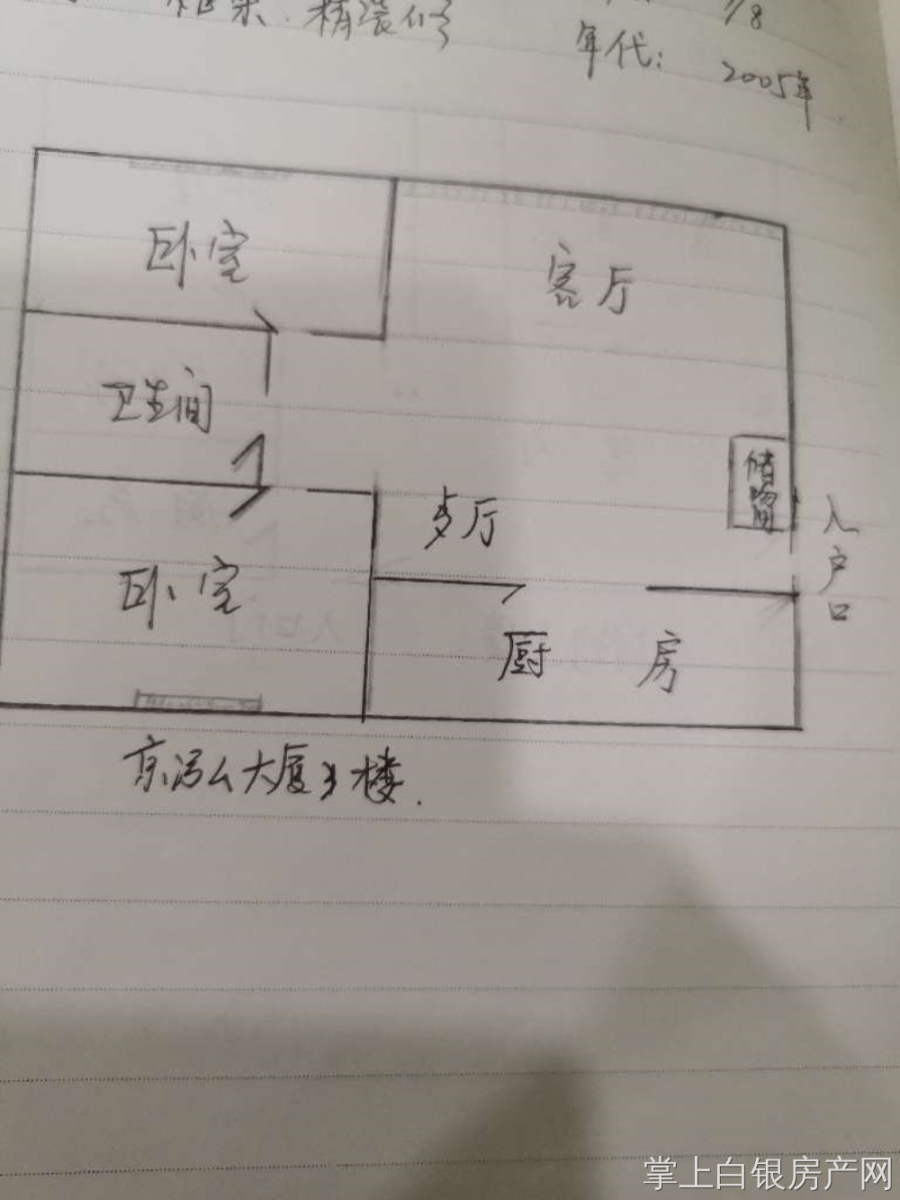 框架. 精装修
/8
年代: 2005年
卧室
客厅
卫生间
储
入户口
卧室
厨 房
大厦 楼.
掌上白银房产网